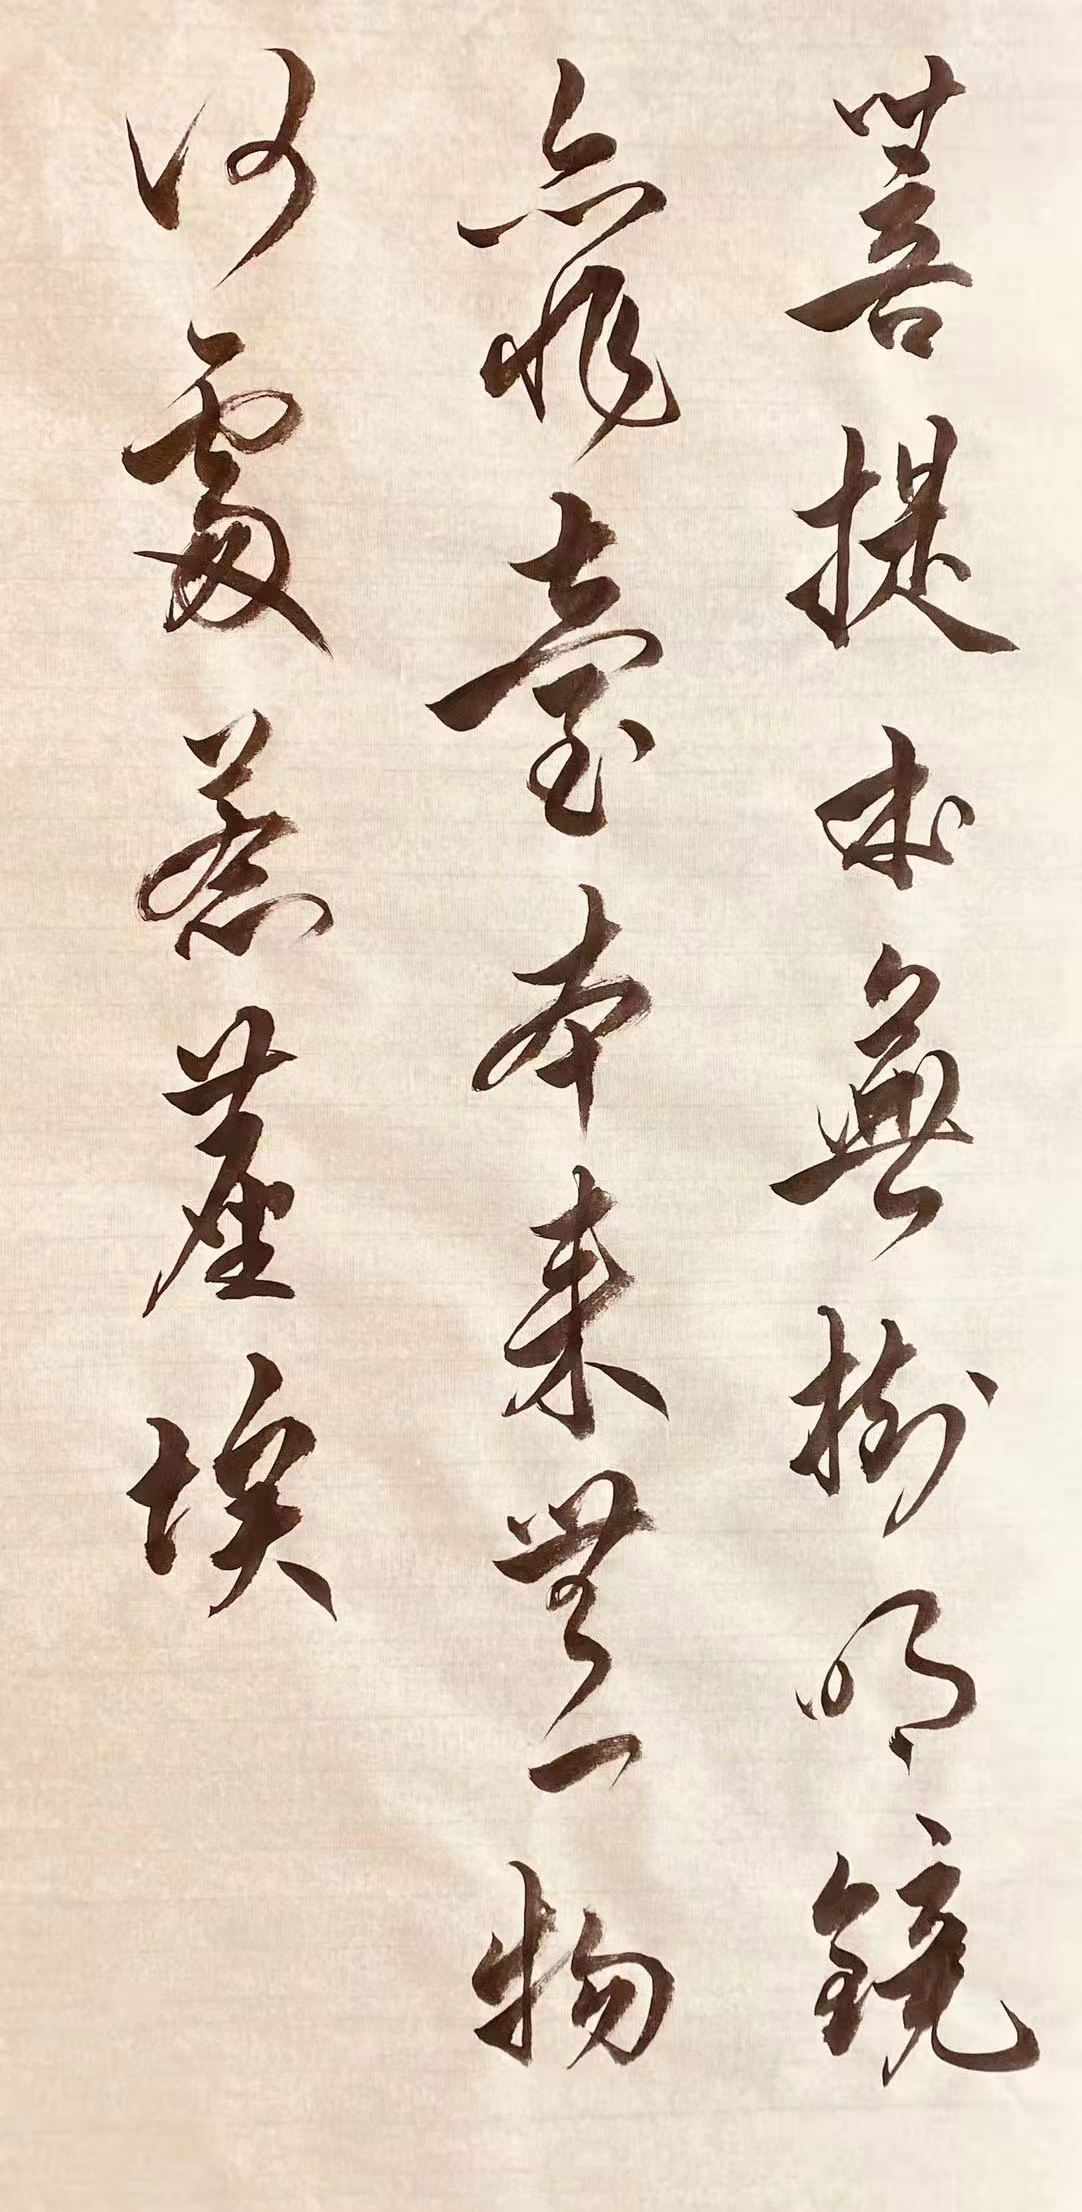 菩提本無樹明鏡
亦非臺本来無一物
何處惹塵埃